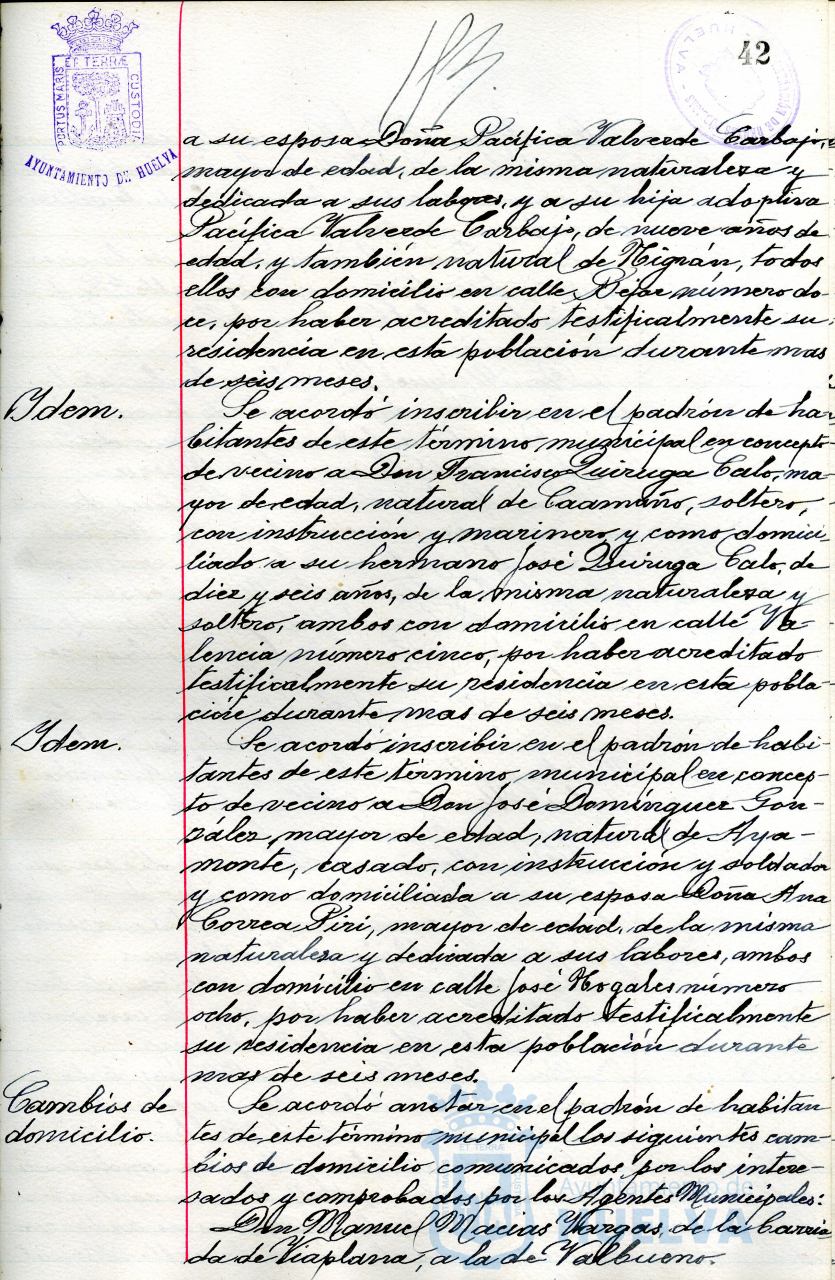 PORTUS MARIS ET TERRÆ CUSTODIA
AYUNTAMIENTO DE HUELVA
HUELVA
42
a su esposa Doña Pacífica Valverde Carbajo,
mayor de edad, de la misma naturaleza y
dedicada a sus labores, y a su hija adoptiva
Pacífica Valverde Carbajo, de nueve años de
edad, y también natural de Nigrán, todos
ellos con domicilio en calle Béjar número do-
ce, por haber acreditado testificalmente su
residencia en esta población durante mas
de seis meses.
Idem.
Se acordó inscribir en el padrón de ha-
bitantes de este término municipal en concepto
de vecino a Don Francisco Quiruga Calo, ma-
yor de edad, natural de Caamaño, soltero,
con instrucción y marinero, y como domici-
liado a su hermano José Quiruga Calo, de
diez y seis años, de la misma naturaleza y
soltero, ambos con domicilio en calle Va-
lencia número cinco, por haber acreditado
testificalmente su residencia en esta pobla-
ción durante mas de seis meses.
Idem.
Se acordó inscribir en el padrón de habi-
tantes de este término municipal en concep-
to de vecino a Don José Domínguez Gon-
zález, mayor de edad, natural de Aya-
monte, casado, con instrucción y soldador
y como domiciliada a su esposa Doña Ana
Correa Piri, mayor de edad, de la misma
naturaleza y dedicada a sus labores, ambos
con domicilio en calle José Nogales número
ocho, por haber acreditado testificalmente
su residencia en esta población durante
mas de seis meses.
Cambios de
domicilio.
Se acordó anotar en el padrón de habitan
tes de este término municipal los siguientes cam-
bios de domicilio comunicados por los intere-
sados y comprobados por los Agentes Municipales:
Don Manuel Macias Vargas, de la barria
da de Viaplana, a la de Valbueno.
Ayuntamiento de
HUELVA